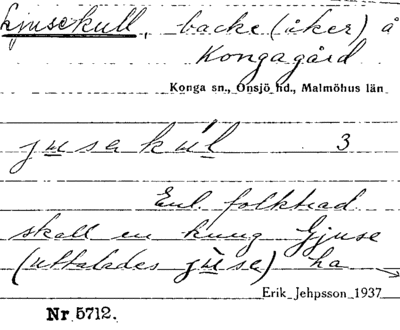 Ljusekull, backe (åker) å
Kongagård
Konga sn., Onsjö hd., Malmöhus län
jusakúl 3
Enl. folktrad.
skall en kung Gjuse
(uttalades jùse) ha
Erik Jehpsson 1937
Nr 5712.